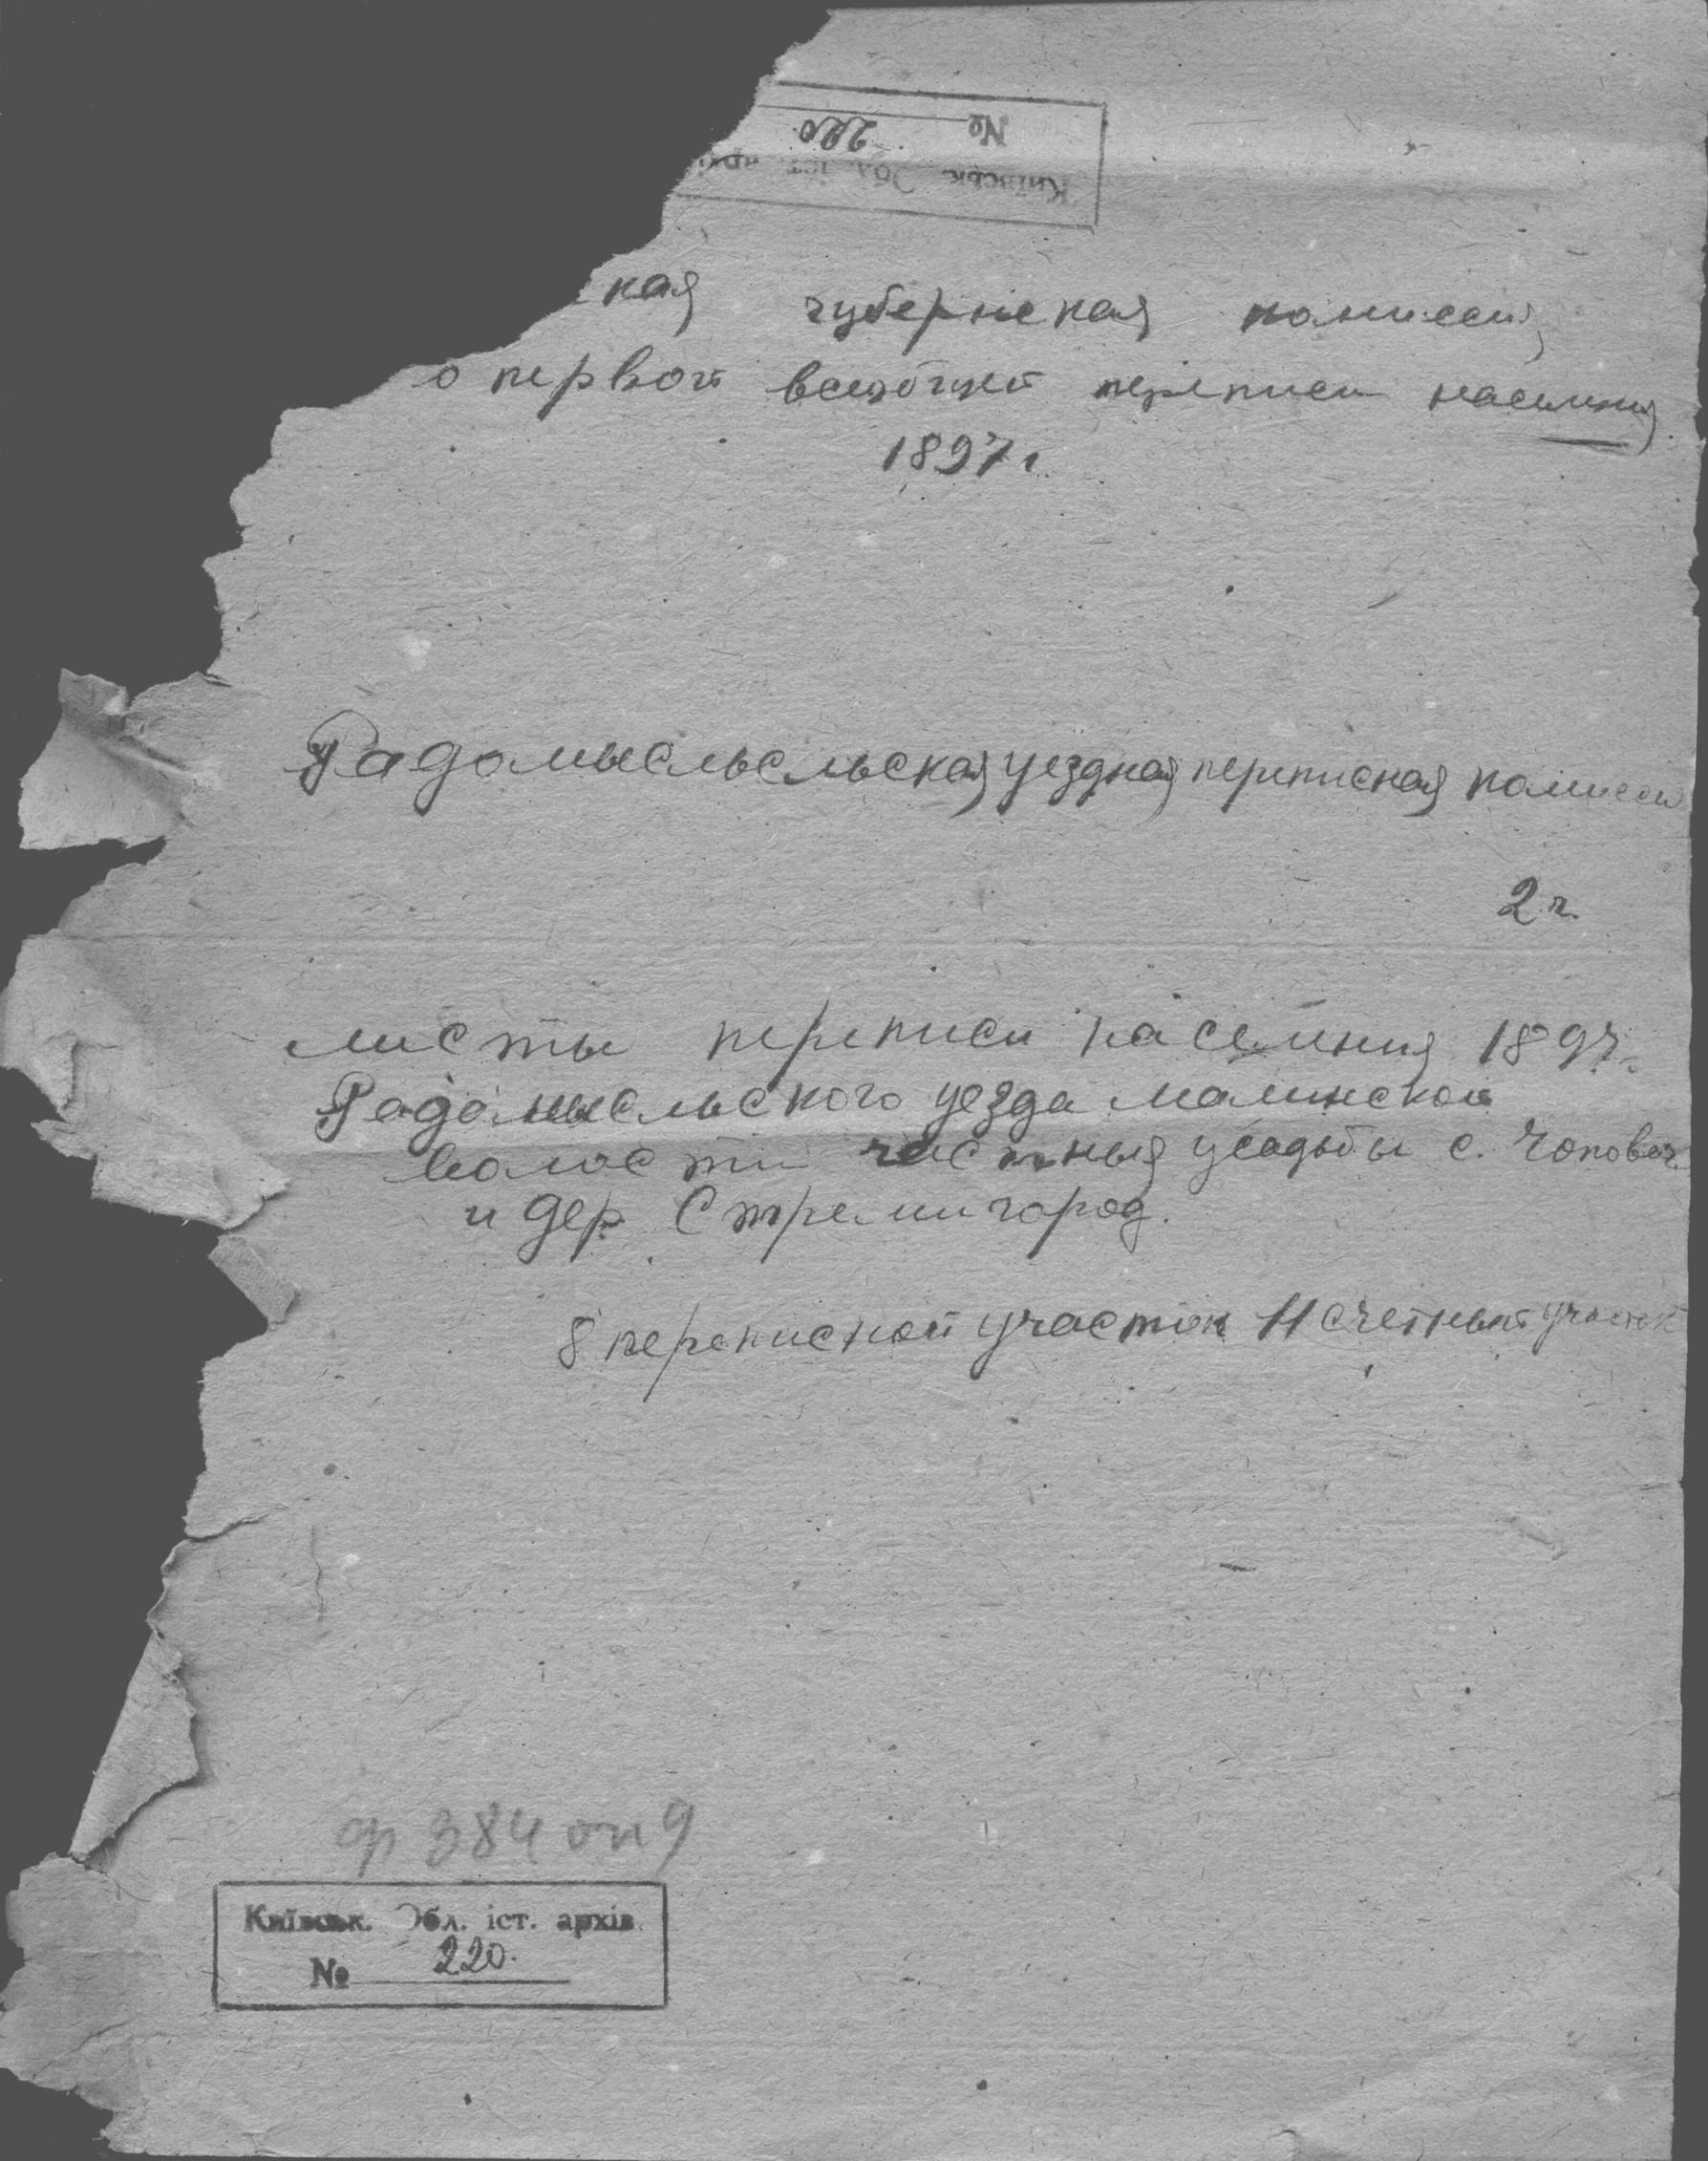 № 220.
Київськ. Обл. іст. архів
ская губернская комиссия
о первой всеобщей переписи населения
1897 г.
Радомысльсльская уездная переписная комисси
2 г.
листы переписи населения 1897 г.
Радомысльского уезда малинской
волости частныя усадьбы с. Чопович
и дер. Стремигород.
8 переписной участок 11 счетный участок
ф 384 оп 9
Київськ. Обл. іст. архів.
№ 220.